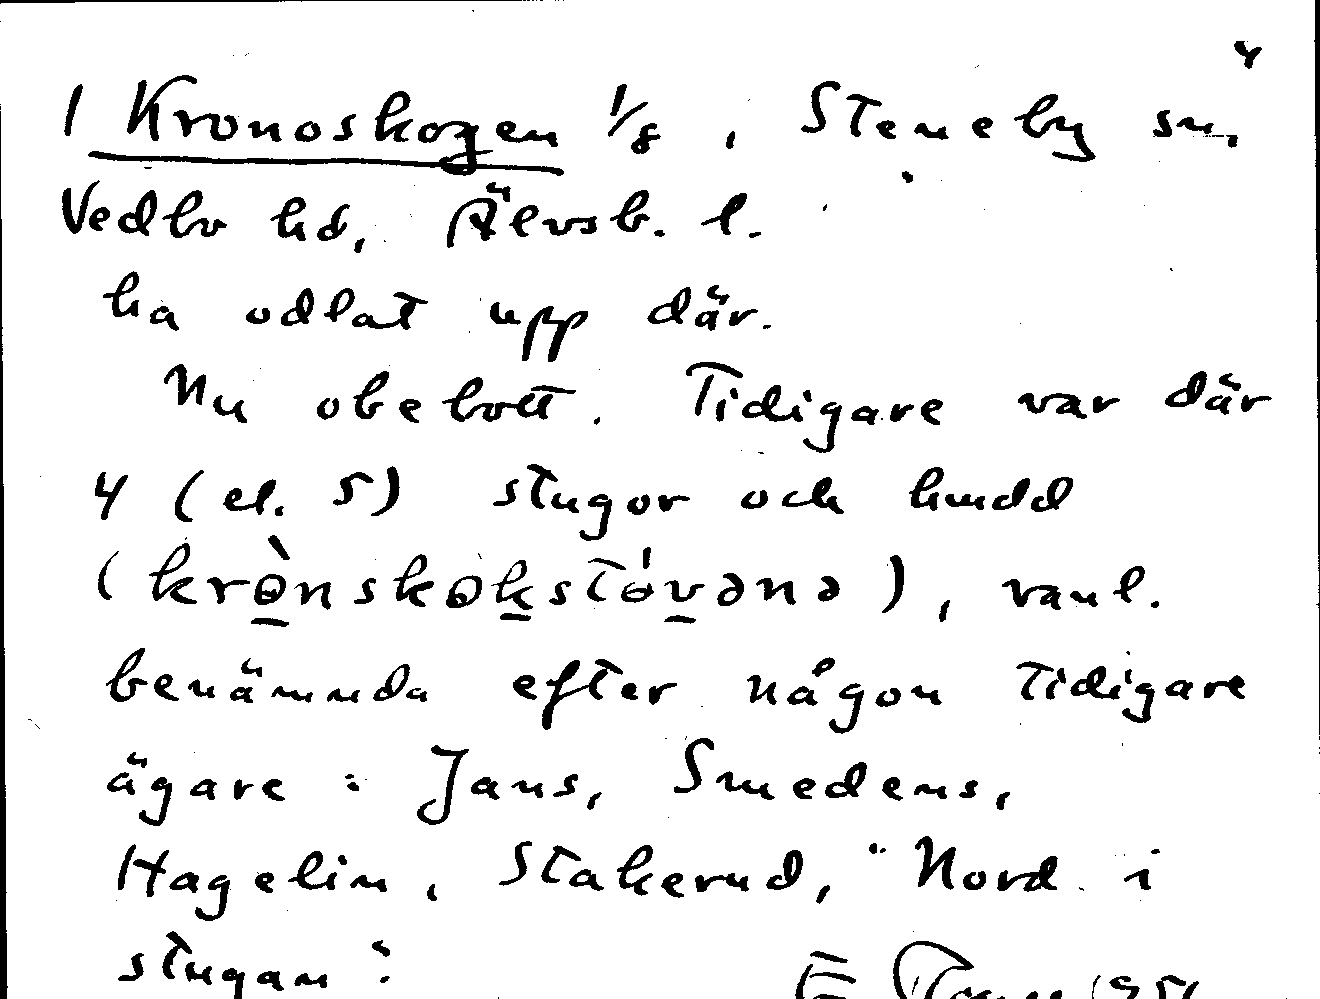 4
1 Kronoskogen 1/8, Steneby sn,
Vedbo hd, Älvsb. l.
ha odlat upp där.
Nu obebott. Tidigare var där
4 (el. 5) stugor och
(krònskokstóvənə), vanl.
benämnda efter någon tidigare
ägare: Jans, Smedens,
Hagelin, Stakerud, "Nord i
stugan".